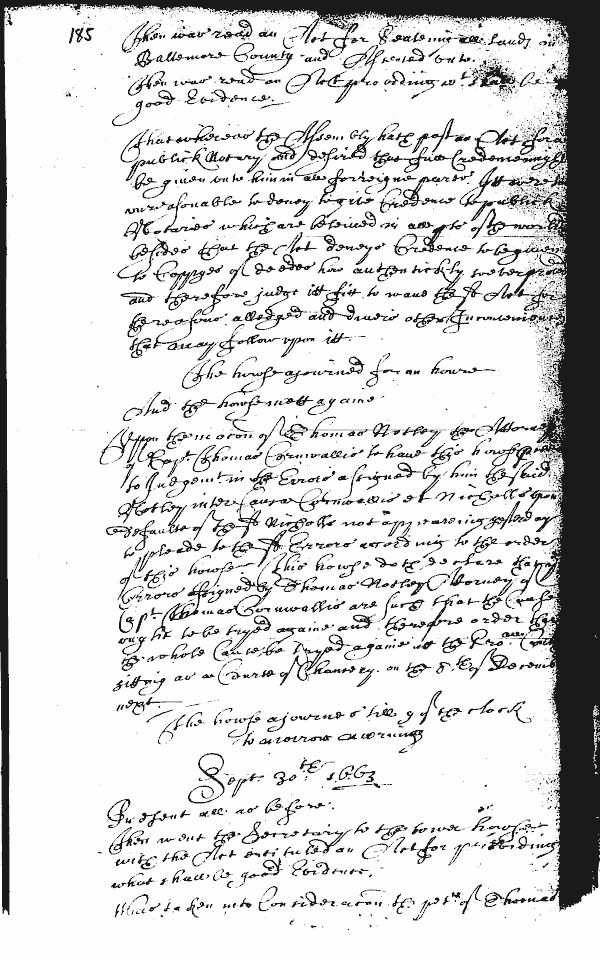 185
Then was read an Act for Seateing all Lands in
Baltemore County and Assented vnto.
Then was read an Act providing wt shall be
good Evidence.
That whereas the Assembly hath past an Act for a
publick Notary and desired that full Credence might
be given vnto him in all forreigne parts. Itt were
vnreasonable to deney to give Credence to publick
Notaries which are beleived in all pts of the world
besides that the Act deneys Credence to be given
to Coppyes of deedes how authentickly soever proved
and therefore judge itt fitt to wave the sd Act for
the reasons alledged and divers other Inconveniences
that may follow vpon itt.
The howse ajourned for an howre
And the howse mett againe
Vpon the mocon of Thomas Notley the Attorney
of Capt Thomas Cornwallis to have this howse
to Judgemt in the Errors assigned by him the said
Notley inter Cornwallis et Nicholls vpon
defaulte of the sd Nicholls not appeareing yesterday
to pleade to the sd Errors according to the order
of this howse. This howse doth declare that the
Errors assigned by Thomas Notley Attorney of
Capt Thomas Cornwallis are such that the Cause
ought to be tryed againe and therefore order that
the whole Cause be tryed againe att the Proall Court
sitting as a Courte of Chancery on the 8th of Decemb
next.
The howse ajournes till 9 of the clock
to morrow morning
Sept. 30th 1663
Present all as before.
Then went the Secretary to the lower howse
with the Act entituled an Act for providing
what shall be good Evidence.
Was taken into Consideracon the petn of Thomas